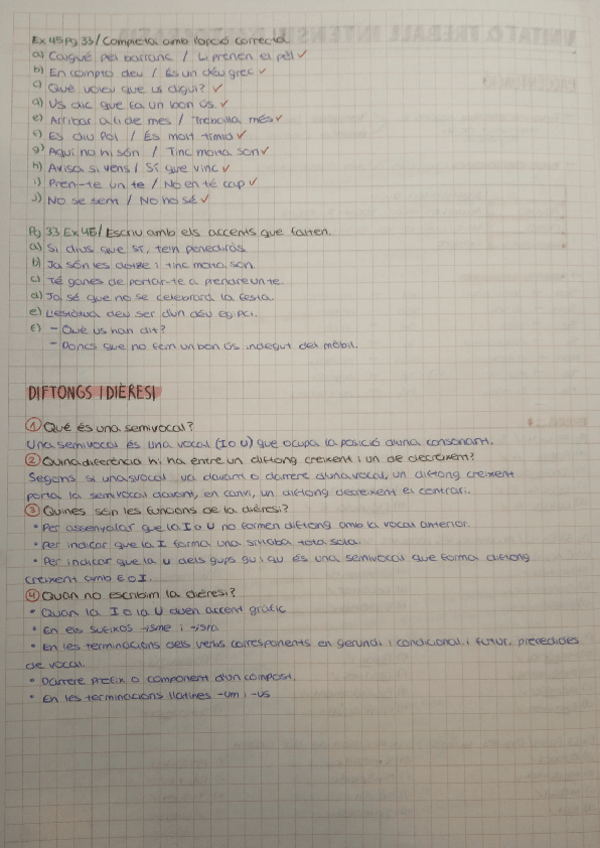 Ex 45 Pg 33 / Completa amb l'opció correcta.
a) Caigué pel barranc / Li prenen el pèl ✓
b) En compto deu / És un déu grec ✓
c) Què voleu que us digui? ✓
d) Us dic que fa un bon ús. ✓
e) Arribar a li de mes / Treballa més ✓
f) Es diu Pol / És molt tímid ✓
g) Aquí no hi són / Tinc molta son ✓
h) Avisa si vens / Sí que vinc ✓
i) Pren-te un te / No en té cap ✓
j) No se sent / No ho sé ✓
Pg 33 Ex 46 / Escriu amb els accents que falten.
a) Si dius que sí, te'n penediràs.
b) Ja són les dotze i tinc molta son.
c) Té ganes de portar-te a prendre un te.
d) Ja sé que no se celebrarà la festa.
e) L'estàtua deu ser d'un déu egipci.
f) - Què us han dit?
- Doncs que no fem un bon ús indegut del mòbil.
DIFTONGS I DIÈRESI
1 Què és una semivocal?
Una semivocal és una vocal (I o U) que ocupa la posició d'una consonant.
2 Quina diferència hi ha entre un diftong creixent i un de decreixent?
Segons si una vocal va davant o darrere d'una vocal, un diftong creixent
porta la semivocal davant, en canvi, un diftong decreixent el contrari.
3 Quines són les funcions de la dièresi?
• Per assenyalar que la I o U no formen diftong amb la vocal anterior.
• Per indicar que la I forma una síl·laba tota sola.
• Per indicar que la U dels gups gu i qu és una semivocal que forma diftong
creixent amb E o I.
4 Quan no escribim la dièresi?
• Quan la I o la U duen accent gràfic
• En els sufixos -isme i -ista
• En les terminacions dels verbs corresponents en gerundi i condicional i futur, precedides
de vocal.
• Darrere prefix o component d'un compost.
• En les terminacions llatines -um i -us